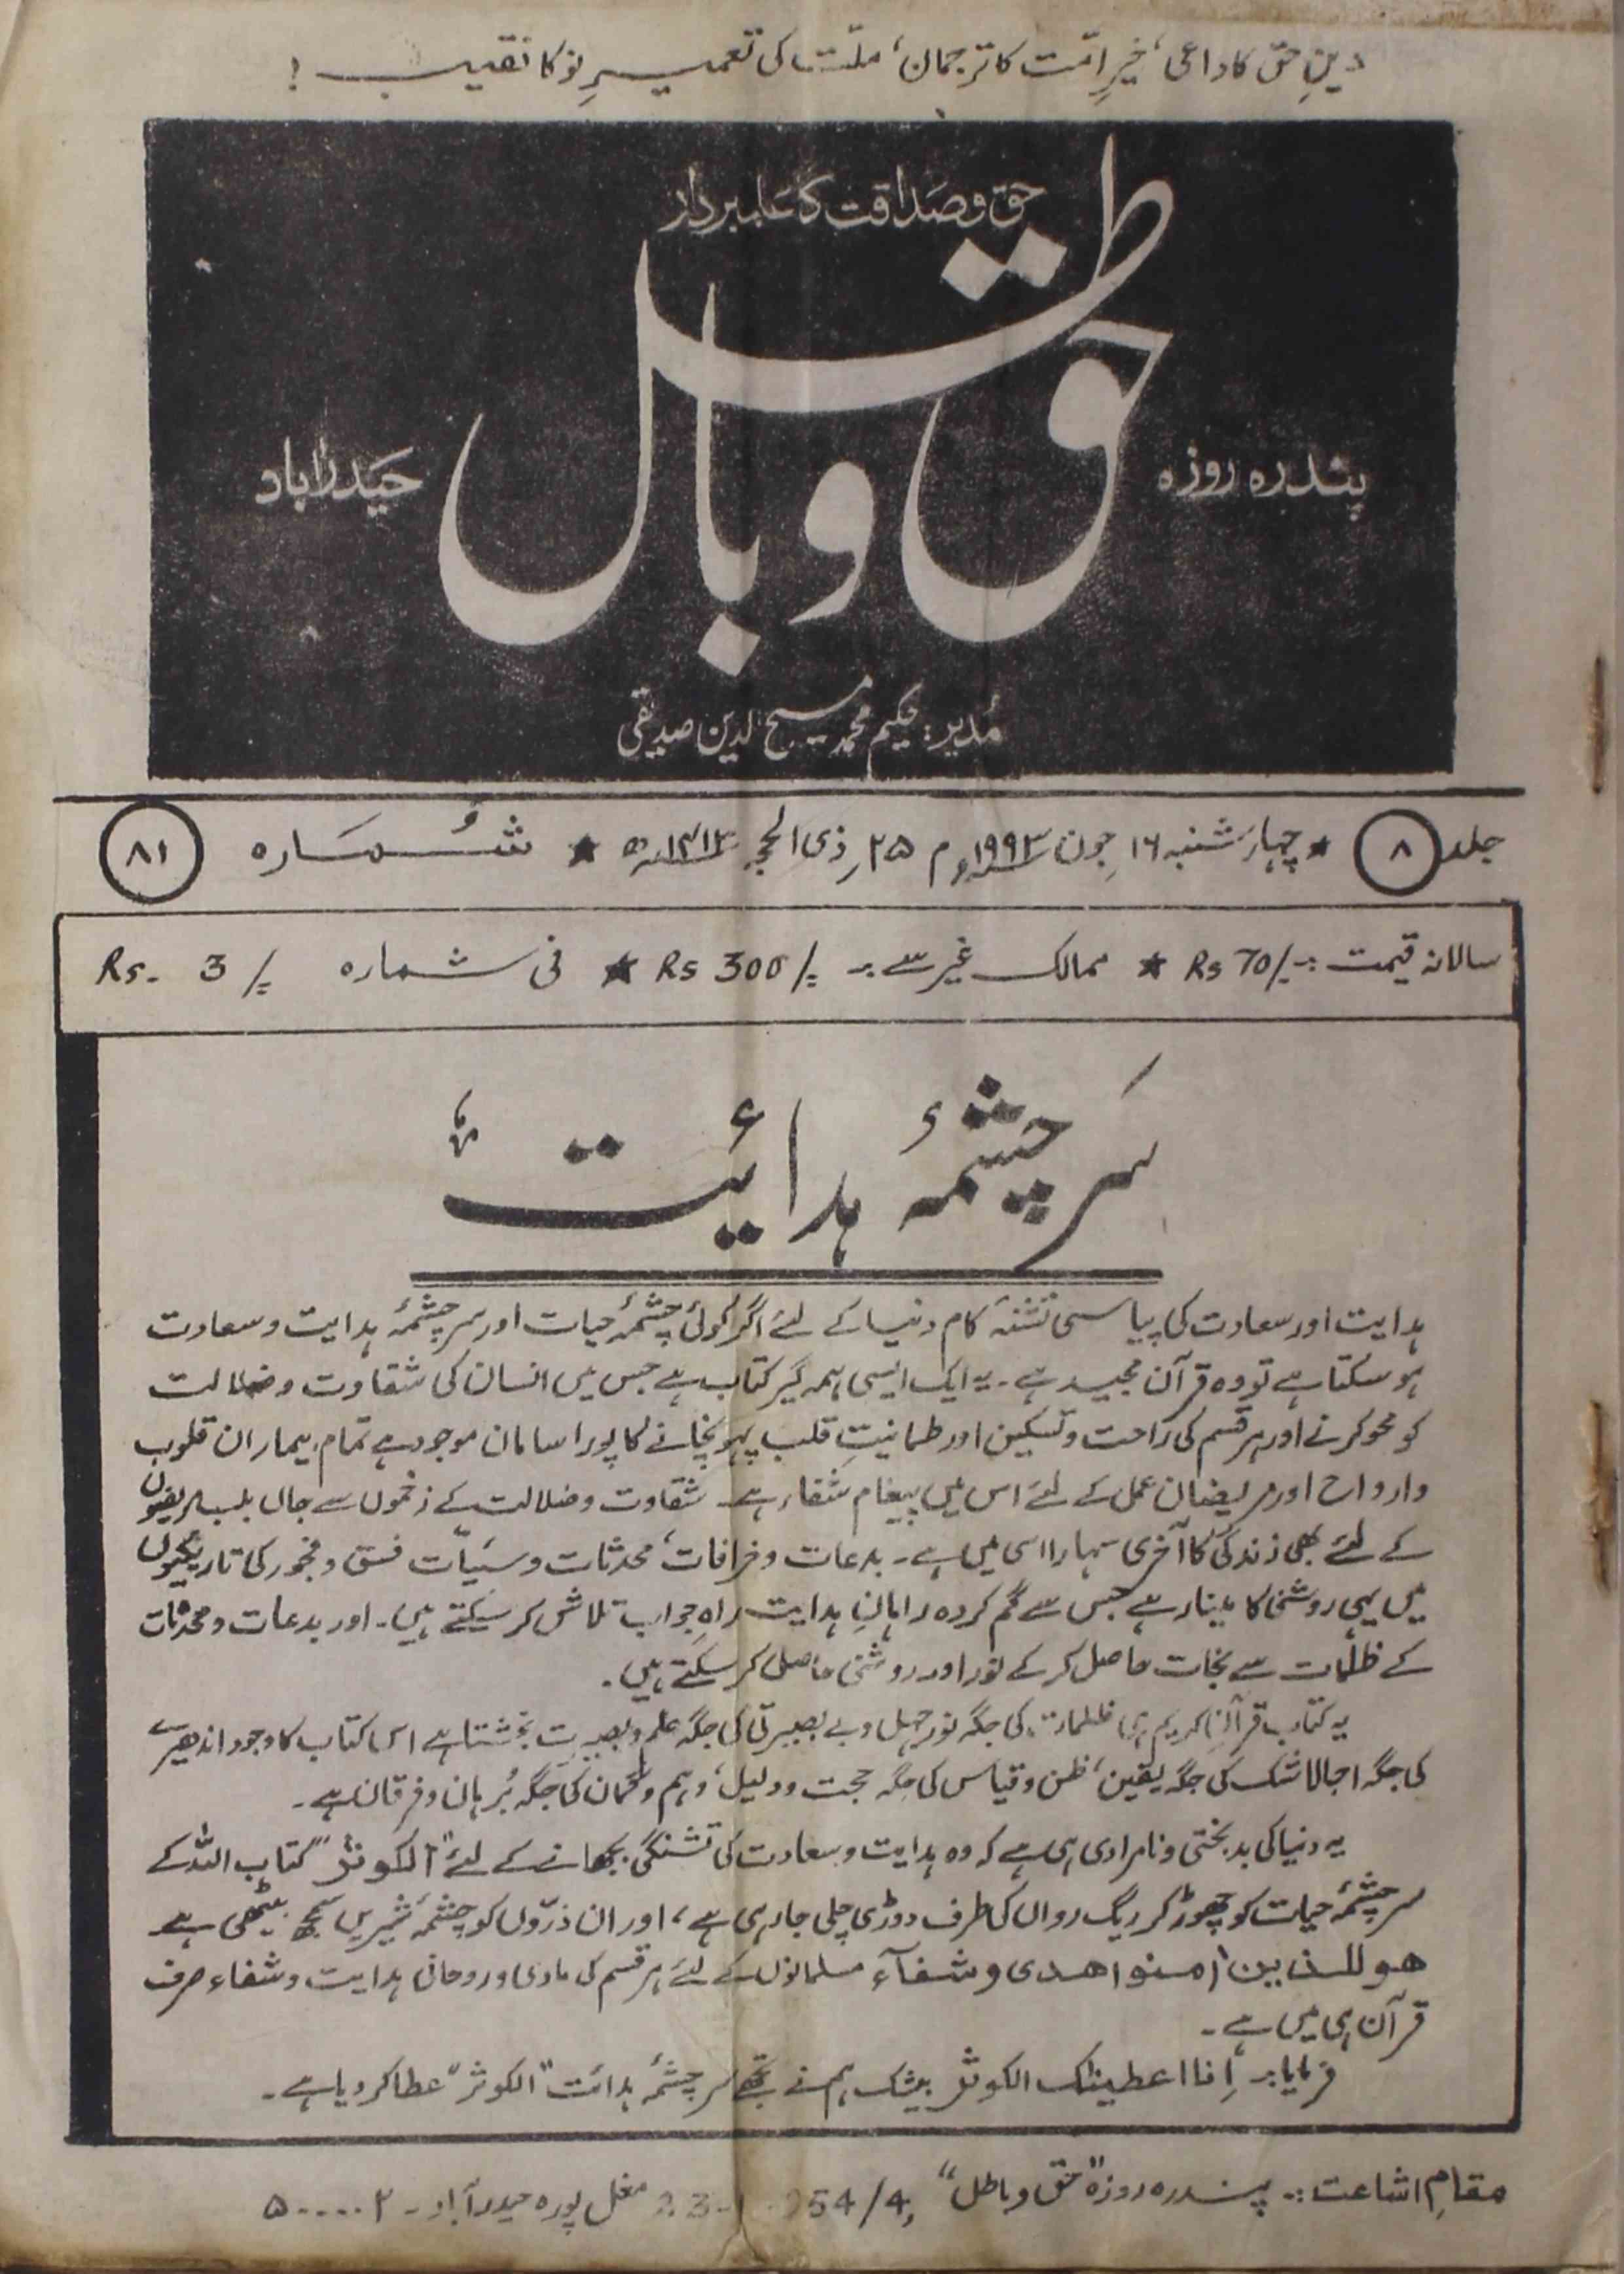 دینِ حق کا داعی، خیرِ امّت کا ترجمان، ملّت کی تعمیرِ نو کا نقیب!
حق و صداقت کا علمبردار
حق و باطل
پندرہ روزہ
حیدرآباد
مُدیر: حکیم محمد مسیح الدین صدیقی
جلد ۸ ★ چہارشنبہ ۱۶ جون ۱۹۹۳ء م ۲۵ ذی الحجہ ۱۴۱۳ھ ★ شُمارہ ۸۱
سالانہ قیمت :- Rs 70/= ★ ممالک غیر سے :- Rs 300/= ★ فی شمارہ Rs. 3/=
سَرچشمۂ ہدائیت
ہدایت اور سعادت کی پیاسی تشنہ کام دنیا کے لئے اگر کوئی چشمۂ حیات اور سرچشمۂ ہدایت و سعادت
ہو سکتا ہے تو وہ قرآن مجید ہے۔ یہ ایک ایسی ہمہ گیر کتاب ہے جس میں انسان کی شقاوت و ضلالت
کو محو کرنے اور ہر قسم کی راحت و تسکین اور طمانیتِ قلب پہونچانے کا پورا سامان موجود ہے تمام بیماران قلوب
و ارواح اور مریضان عمل کے لئے اس میں پیغام شفاء ہے۔ شقاوت و ضلالت کے زخموں سے جاں بلب مریضوں
کے لئے بھی زندگی کا آخری سہارا اسی میں ہے۔ بدعات و خرافات، محدثات و سیّآت فسق و فجور کی تاریکیوں
میں یہی روشنی کا مینار ہے جس سے گم کردہ راہانِ ہدایت راہِ جواب تلاش کر سکتے ہیں۔ اور بدعات و محدثات
کے ظلمات سے نجات حاصل کر کے نور اور روشنی حاصل کر سکتے ہیں۔
یہ کتاب قرآن کریم ہی ظلمات کی جگہ نور جہل و بے بصیرتی کی جگہ علم و بصیرت بخشتا ہے اس کتاب کا وجود اندھیرے
کی جگہ اجالا شک کی جگہ یقین، ظن و قیاس کی جگہ حجت و دلیل، وہم و گمان کی جگہ بُرہان و فرقان ہے۔
یہ دنیا کی بدبختی و نامرادی ہی ہے کہ وہ ہدایت و سعادت کی تشنگی بجھانے کے لئے "الکوثر" کتاب اللہ کے
سرچشمۂ حیات کو چھوڑ کر ریگ رواں کی طرف دوڑی چلی جا رہی ہے، اور ان ذرّوں کو چشمۂ شیریں سمجھ بیٹھی ہے
ھو للذین امنوا ھدی و شفآء مسلمانوں کے لئے ہر قسم کی مادی و روحانی ہدایت و شفاء صرف
قرآن ہی میں ہے۔
فرمایا :- اِنا اعطینٰک الکوثر بیشک ہم نے تجھے سرچشمۂ ہدائت "الکوثر" عطا کر دیا ہے۔
مقامِ اشاعت :- پندرہ روزہ "حق و باطل" 254/4, مغل پورہ حیدرآباد۔ ۵۰۰۰۰۲